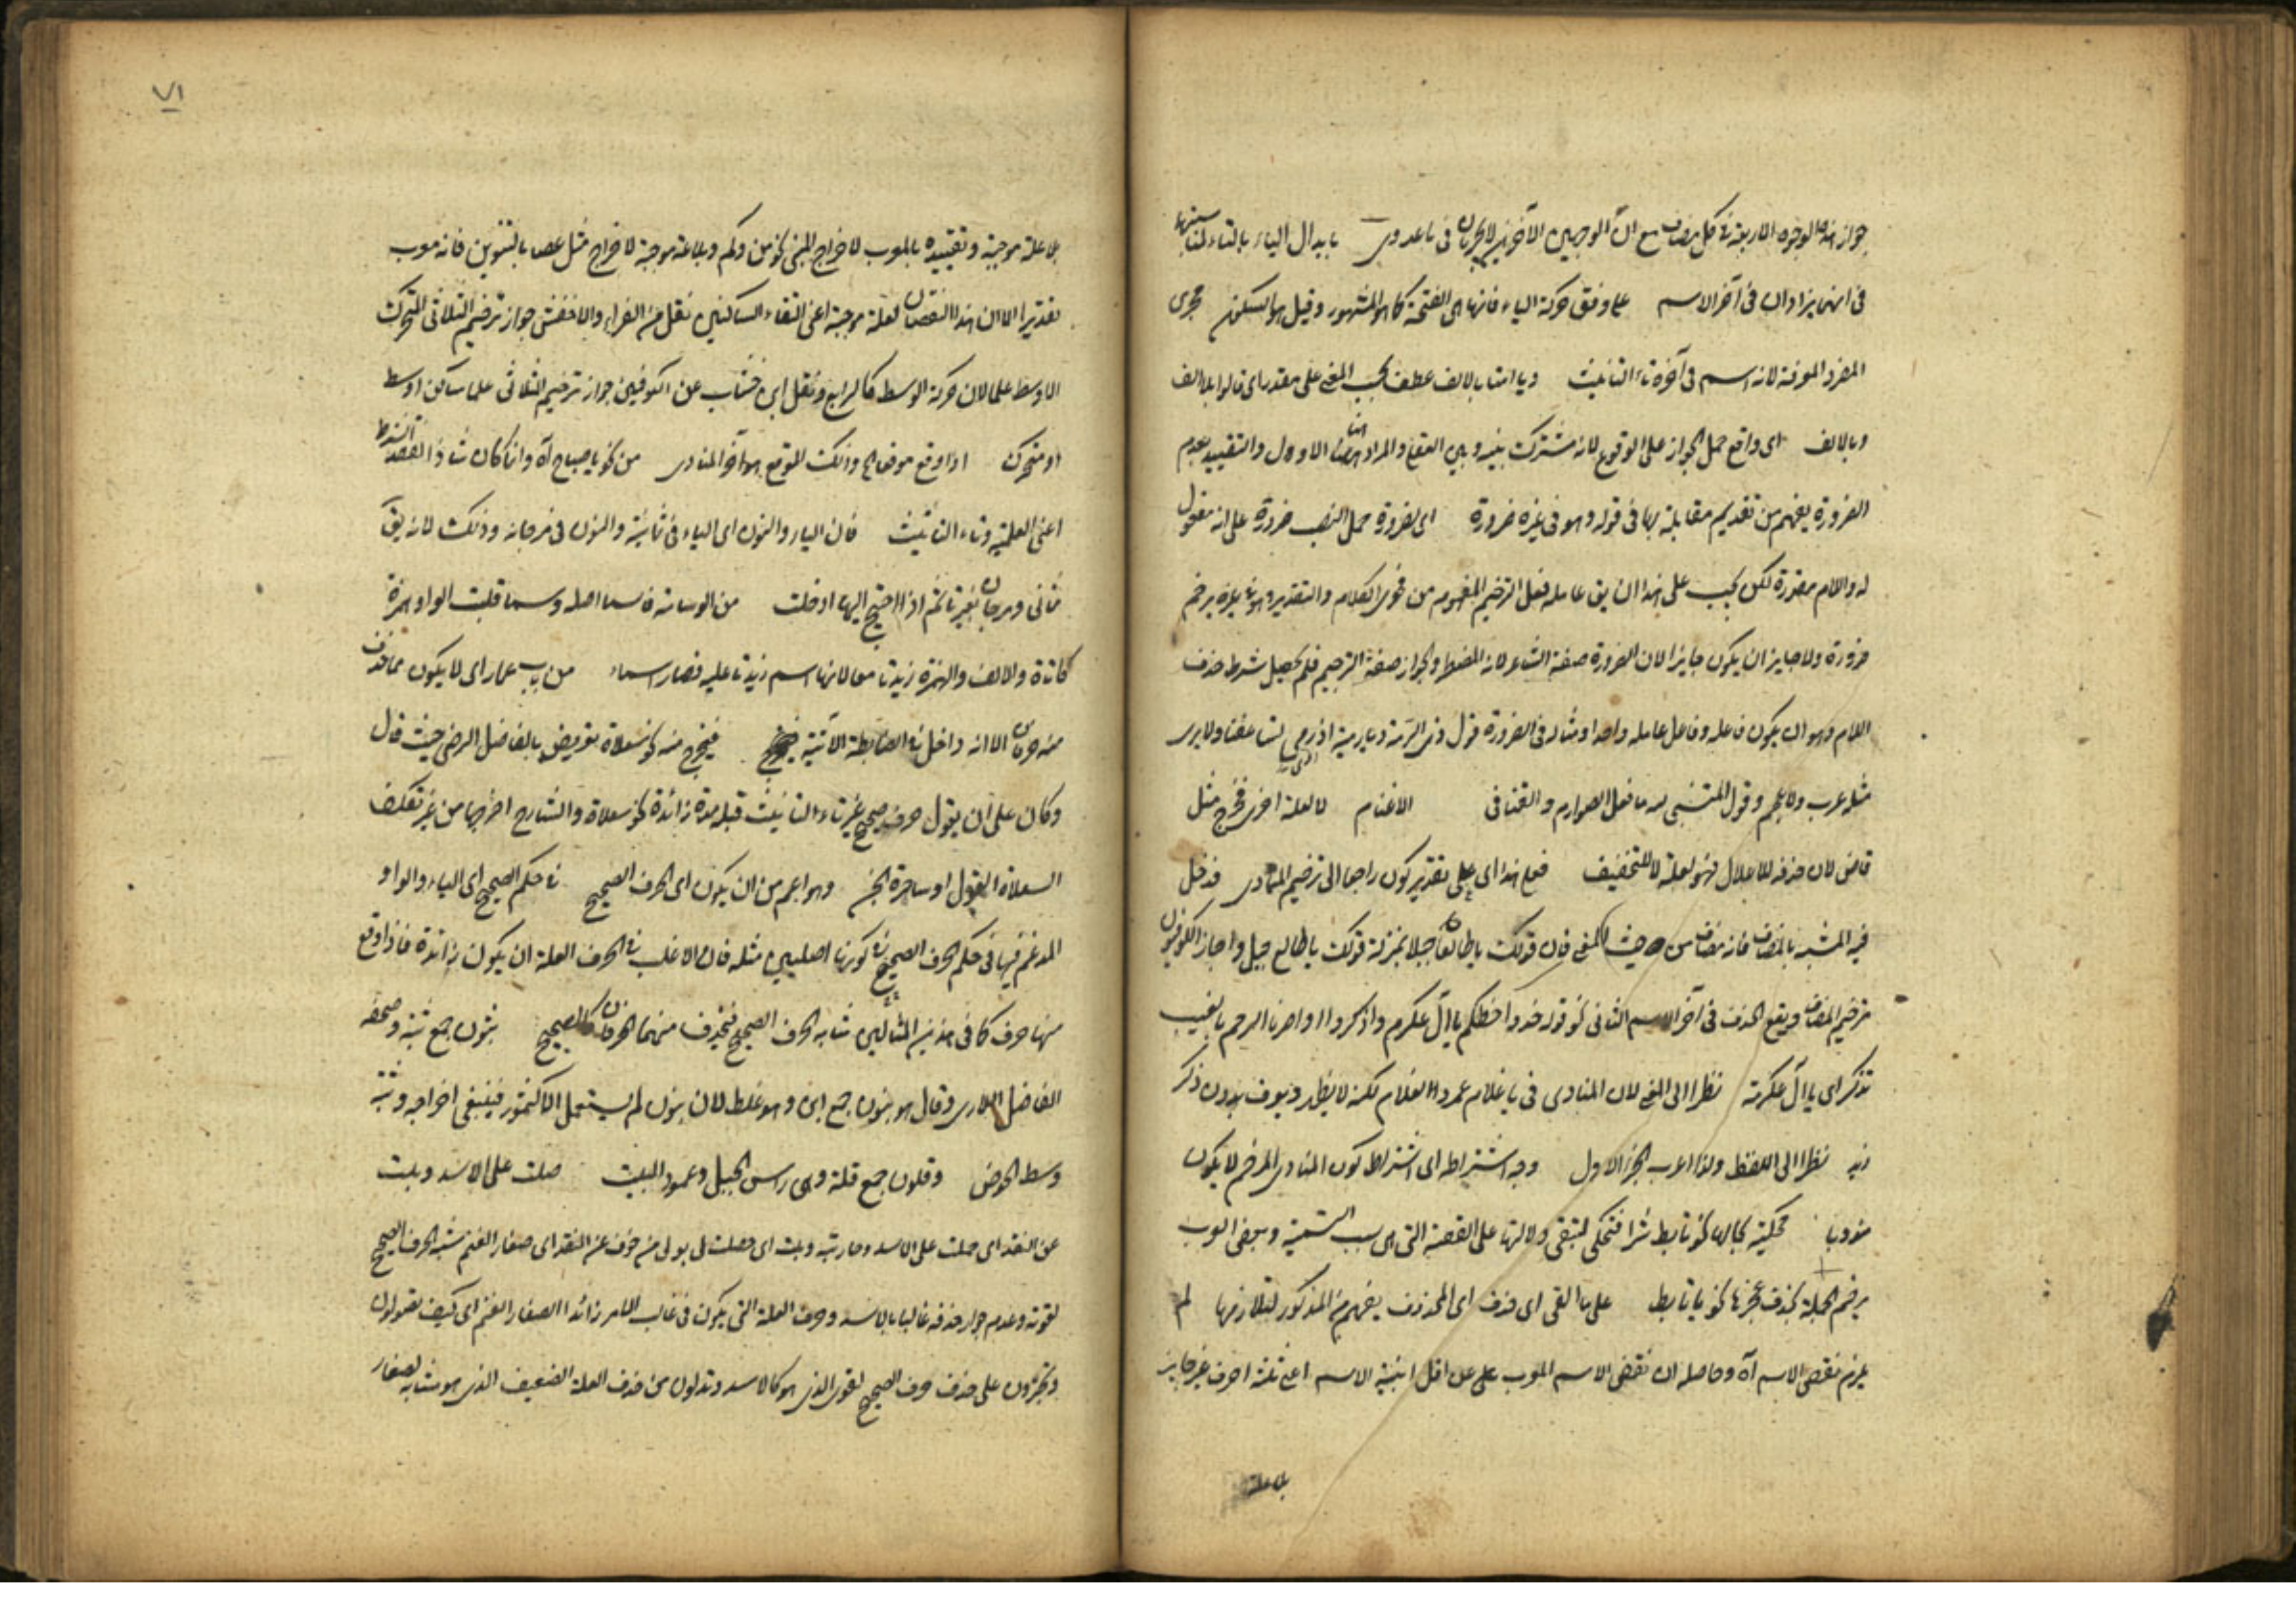 جواز هذه الوجوه الاربعة في كل مضاف مع ان الوجهين الآخرين لا يجريان في يا عدوى بابدال الياء بالتاء لمناسبتهما
في انهما يزادان في آخر الاسم على وفق حركة الياء فانها اى الفتحة كما هو المشهور وقيل هو السكون مجرى
المفرد المعرفة لانه اسم في آخره تاء التانيث ويا امتا بالالف عطف بحسب المعنى على مقدر اى قالوا بلا الف
وبالالف اى واقع حمل الجواز على الوقوع لانه مشترك بينه وبين الامتناع والمراد ههنا الاول والتقييد بعدم
الضرورة يفهم من تقديم مقابلة بها في قوله وهو في غيره ضرورة اى لضرورة حمل النصب ضرورة على انه مفعول
له واللام مقدرة لكن يجب على هذا ان يق عامله فعل الترخيم المفهوم من فحوى الكلام والتقدير وهو في غيره يرخم
ضرورة ولا جايز ان يكون جايزا لان الضرورة صفة الشاعر لانه المضطر والجواز صفة الترخيم فلم يحصل شرط حذف
اللام وهو ان يكون فاعله وفاعل عامله واحدا ومثاله في الضرورة قول ذى الرمة ديار مية اذ مى تساعفنا ولا يرى
مثلها عرب ولا عجم وقول المتنبي لله ما فعل الصوارم والقنا في الاغنام لا لعلة اخرى فخرج مثل
قاض لان حذفه للاعلال فهو لعلة لا للتخفيف فعلى هذا اى على تقدير كون راجعا الى ترخيم المنادى فدخل
فيه المشبه بالمضاف فانه مضاف من حيث المعنى فان قولك يا طالعا جبلا بمنزلة قولك يا طالع جبل واجاز الكوفيون
ترخيم المضاف ويقع الحذف في آخر الاسم الثاني نحو قوله خذوا حظكم يا آل عكرم واذكروا اواصرنا والرحم بالغيب
تذكر اى يا آل عكرمة نظرا الى المعنى لان المنادى في يا غلام عمرو الغلام لكنه لا يظهر ويعرف بدون ذكر
زيد نظرا الى اللفظ ولذا اعرب الجزء الاول وجه اشتراطه اى اشتراط كون المنادى المرخم لا يكون
مندوبا محكية بحالها نحو تابط شرا فتحكى لتبقى دلالتها على القصة التي هى سبب التسمية وبعض العرب
يرخم الجملة بحذف عجزها نحو يا تابط على ما القى اى حذف اى المحذوف يفهم من المذكور لتلازمهما لم
يلزم نقص الاسم آه وحاصله ان نقص الاسم المعرب على عن اقل ابنية الاسم اعنى ثلثة احرف غير جايز
بلا علة
٧١
بلا علة موجبة وتقييده بالمعرب لاخراج المبنى نحو من وكم وبلا علة موجبة لاخراج مثل عصا بالتنوين فانه معرب
تقديرا الا ان هذا النقصان لعلة موجبة اعنى التقاء الساكنين نقل عن الفراء والاخفش جواز ترخيم الثلاثى المتحرك
الاوسط علما لان حركة الوسط كالرابع ونقل ابن خشاب عن الكوفيين جواز ترخيم الثلاثى علما ساكن اوسط
او متحرك اذا وقع موقعا الخ وذلك الموقع هو آخر المنادى من نحو يا صباح آه وانما كان شاذا لفقد الشرط
اعنى العلمية وتاء التانيث فان الياء والنون اى الياء في ثمانية والنون في مرجانة وذلك لانه يق
ثمانى ومرجان بغير تاء ثم اذا احتيج اليها ادخلت من الوسامة فاسماء اصله وسماء قلبت الواو همزة
كاناة والالف والهمزة زيدتا معا لانها اسم زيدتا عليه فصار اسماء من باب عمار اى لا يكون مما حذف
منه حرفان الا انه داخل في الضابطة الآتية فيخرج منه نحو سعلاة تعريض بالفاضل الرضى حيث قال
وكان على ان يقول حرف صحيح غير تاء التانيث قبله مدة زائدة نحو سعلاة والشارح اخرجها من غير تكلف
السعلاة الغول او ساحرة الجن وهو اعم من ان يكون اى الحرف الصحيح في حكم الصحيح اى الياء والواو
المدغم فيهما في حكم الحرف الصحيح في كونهما اصليين مثله فان الاغلب في الحرف العلة ان يكون زائدة فاذا وقع
منها حرف كما في هذين المثالين شابه الحرف الصحيح فيحذف منهما الحرفان كالصحيح بثون جمع ثبة وصحفه
الفاضل اللارى وقال هو بنون جمع ابن وهو غلط لان بنون لم يستعمل الا كثمود فينبغى اخراجه وثبة
وسط الحوض وقلون جمع قلة وهى راس الجبل وعمود البيت صلت على الاسد وبلت
عن النقد اى حملت على الاسد وحاربته وبلت اى حصلت لى بولى من خوف عن النقد اى صغار الغنم شبه الحرف الصحيح
لقوته وعدم جواز حذفه غالبا بالاسد وحرف العلة التي يكون في غالب الامر زائدا الصغار الغنم اى كيف تصولون
وتجترؤن على حذف حرف الصحيح لقوى الذى هو كالاسد وتبولون من حذف العلة الضعيف الذى هو مشابه لصغار